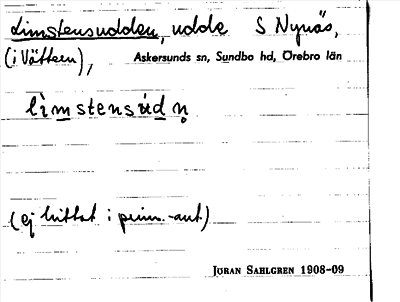 Limstensudden, udde S Nynäs,
(i Vättern), Askersunds sn, Sundbo hd, Örebro län
lìmstensúdṇ
(ej hittat i prim.-ant)
JÖRAN SAHLGREN 1908-09